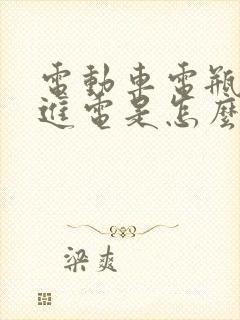 電動車電瓶
進電是怎麼
梁爽